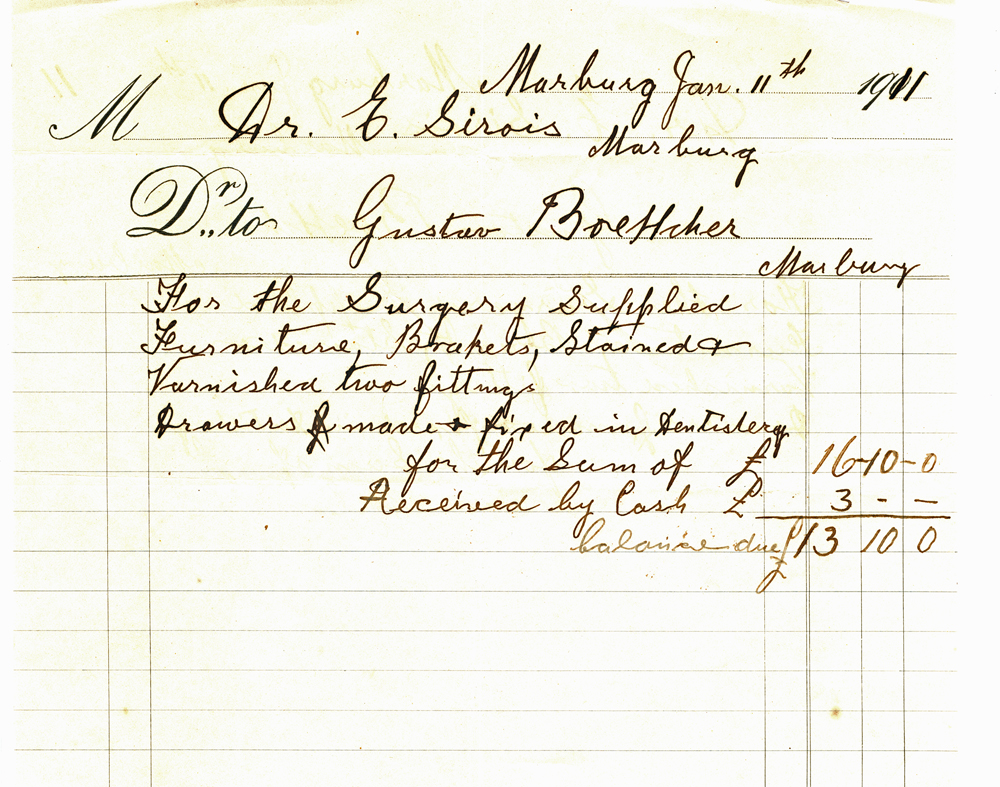 Marburg Jan. 11th 1911
M Dr. E. Sirois
Marburg
Dr. to Gustav Boettcher
Marburg
For the Surgery Supplied
Furniture, Brakets, Stained &
Varnished two fittings
Drawers made & fixed in Dentistery
for the Sum of £ 16-10-0
Received by Cash £ 3 - -
balance due £ 13 10 0